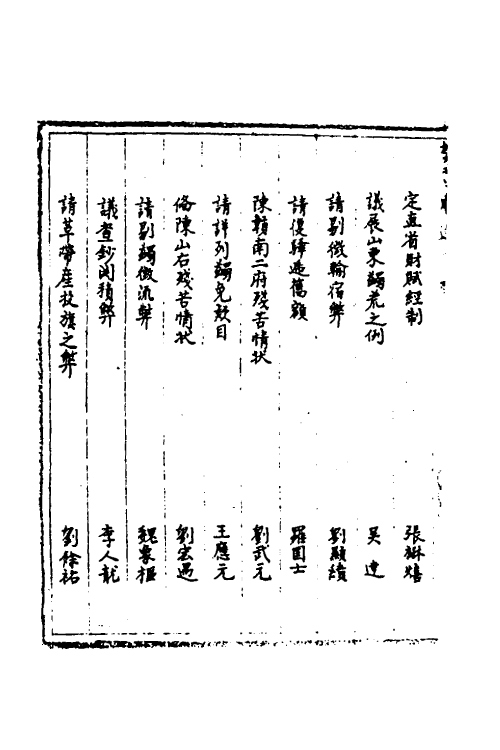 定直省財賦經制 張懋熺
議展山東蠲荒之例 吳達
請剔徵輸宿弊 劉顯績
請復驛遞舊額 羅國士
陳贛南二府殘苦情狀 劉武元
請詳列蠲免款目 王應元
備陳山右殘苦情狀 劉宏遇
請剔蠲徵流弊 魏象樞
議查鈔關積弊 李人龍
請革帶產投旗之弊 劉餘祐